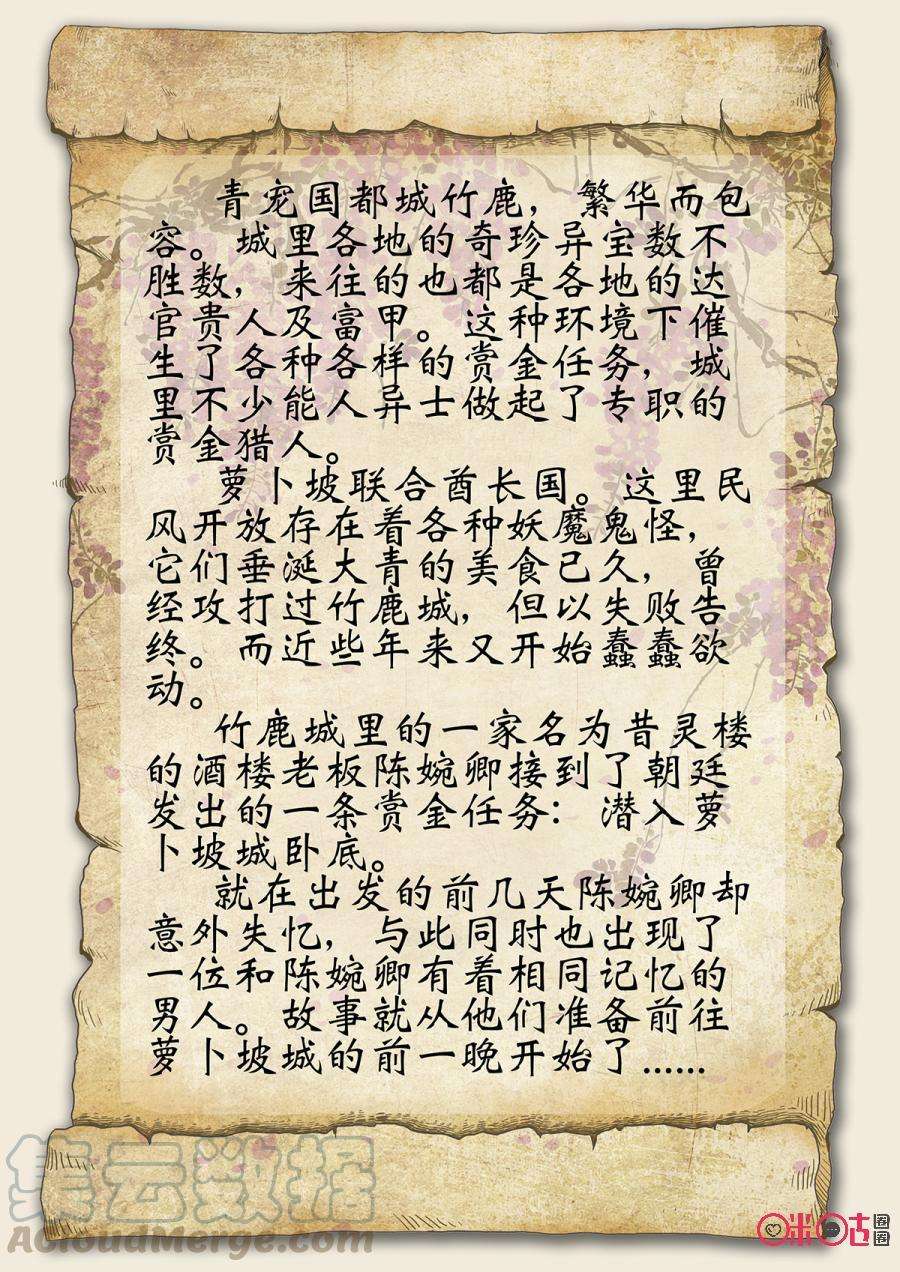 青宠国都城竹鹿，繁华而包
容。城里各地的奇珍异宝数不
胜数，来往的也都是各地的达
官贵人及富甲。这种环境下催
生了各种各样的赏金任务，城
里不少能人异士做起了专职的
赏金猎人。
萝卜坡联合酋长国。这里民
风开放存在着各种妖魔鬼怪，
它们垂涎大青的美食已久，曾
经攻打过竹鹿城，但以失败告
终。而近些年来又开始蠢蠢欲
动。
竹鹿城里的一家名为昔灵楼
的酒楼老板陈婉卿接到了朝廷
发出的一条赏金任务：潜入萝
卜坡城卧底。
就在出发的前几天陈婉卿却
意外失忆，与此同时也出现了
一位和陈婉卿有着相同记忆的
男人。故事就从他们准备前往
萝卜坡城的前一晚开始了......
集云数据
AcloudMerge.com
咪咕
圈圈